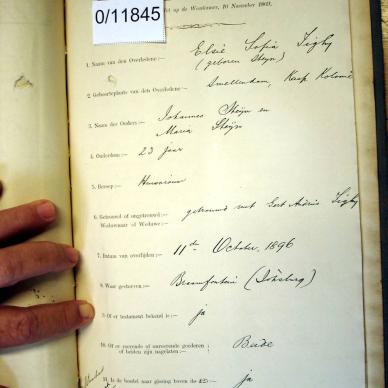 0/11845
op de Weeskamer, 10 November 1903.
Elsie Sofia Tighy
1. Naam van den Overledene:—
(geboren Steyn)
2. Geboorteplaats van den Overledene:—
Smellendam, Kaap Kolonie
Johannes Steyn en
3. Namen der Ouders:—
Maria Steyn
4. Ouderdom:— 23 jaar
5. Beroep:— Huisvrouw
6. Getrouwd of ongetrouwd:— getrouwd met Gert Andries Tighy
Weduwnaar of Weduwe:—
7. Datum van overlijden:— 11de October, 1896
8. Waar gestorven:— Braamfontein (Johsburg)
9. Of er testament bekend is:— ja
10. Of er roerende of onroerende goederen
of beiden zijn nagelaten:— Beide
11. Is de boedel naar gissing boven de £25:— ja